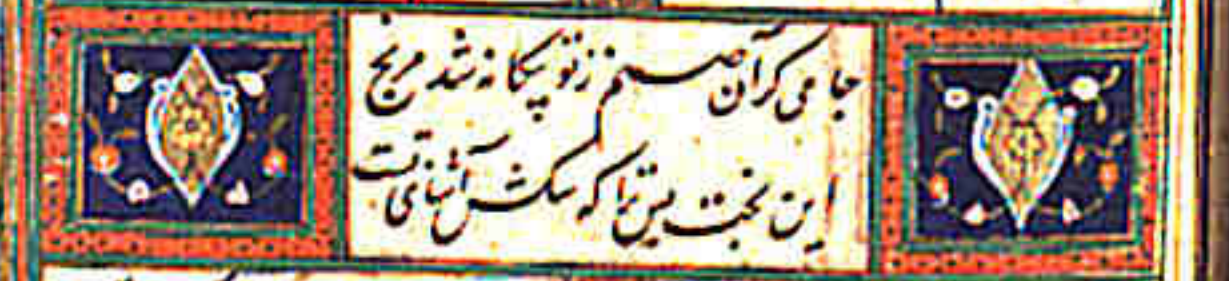 جامی کر آن صنم ز تو بیگانه شد مرنج
این بخت بس ترا که سگش آشنای تست